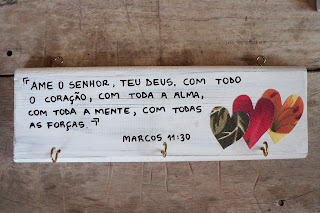 "AME O SENHOR, TEU DEUS, COM TODO
O CORAÇÃO, COM TODA A ALMA,
COM TODA A MENTE, COM TODAS
AS FORÇAS."
MARCOS 11:30